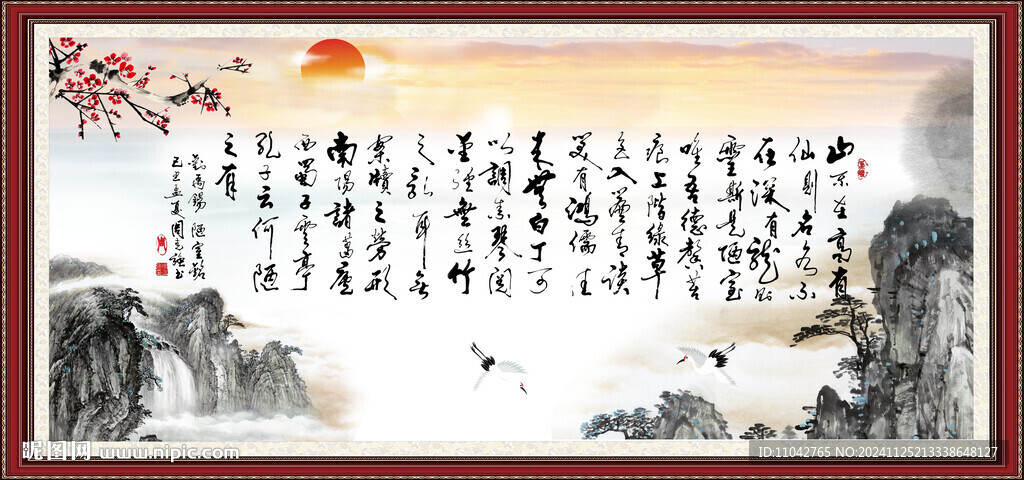 山不在高有
仙則名水不
在深有龍則
靈斯是陋室
唯吾德馨苔
痕上階綠草
色入簾青談
笑有鴻儒往
来無白丁可
以調素琴閱
金經無絲竹
之亂耳無
案牘之勞形
南陽諸葛廬
西蜀子雲亭
孔子云何陋
之有
劉禹錫 陋室銘
孟夏周書
昵图网 www.nipic.com
ID:11042765 NO:20241125213338648127